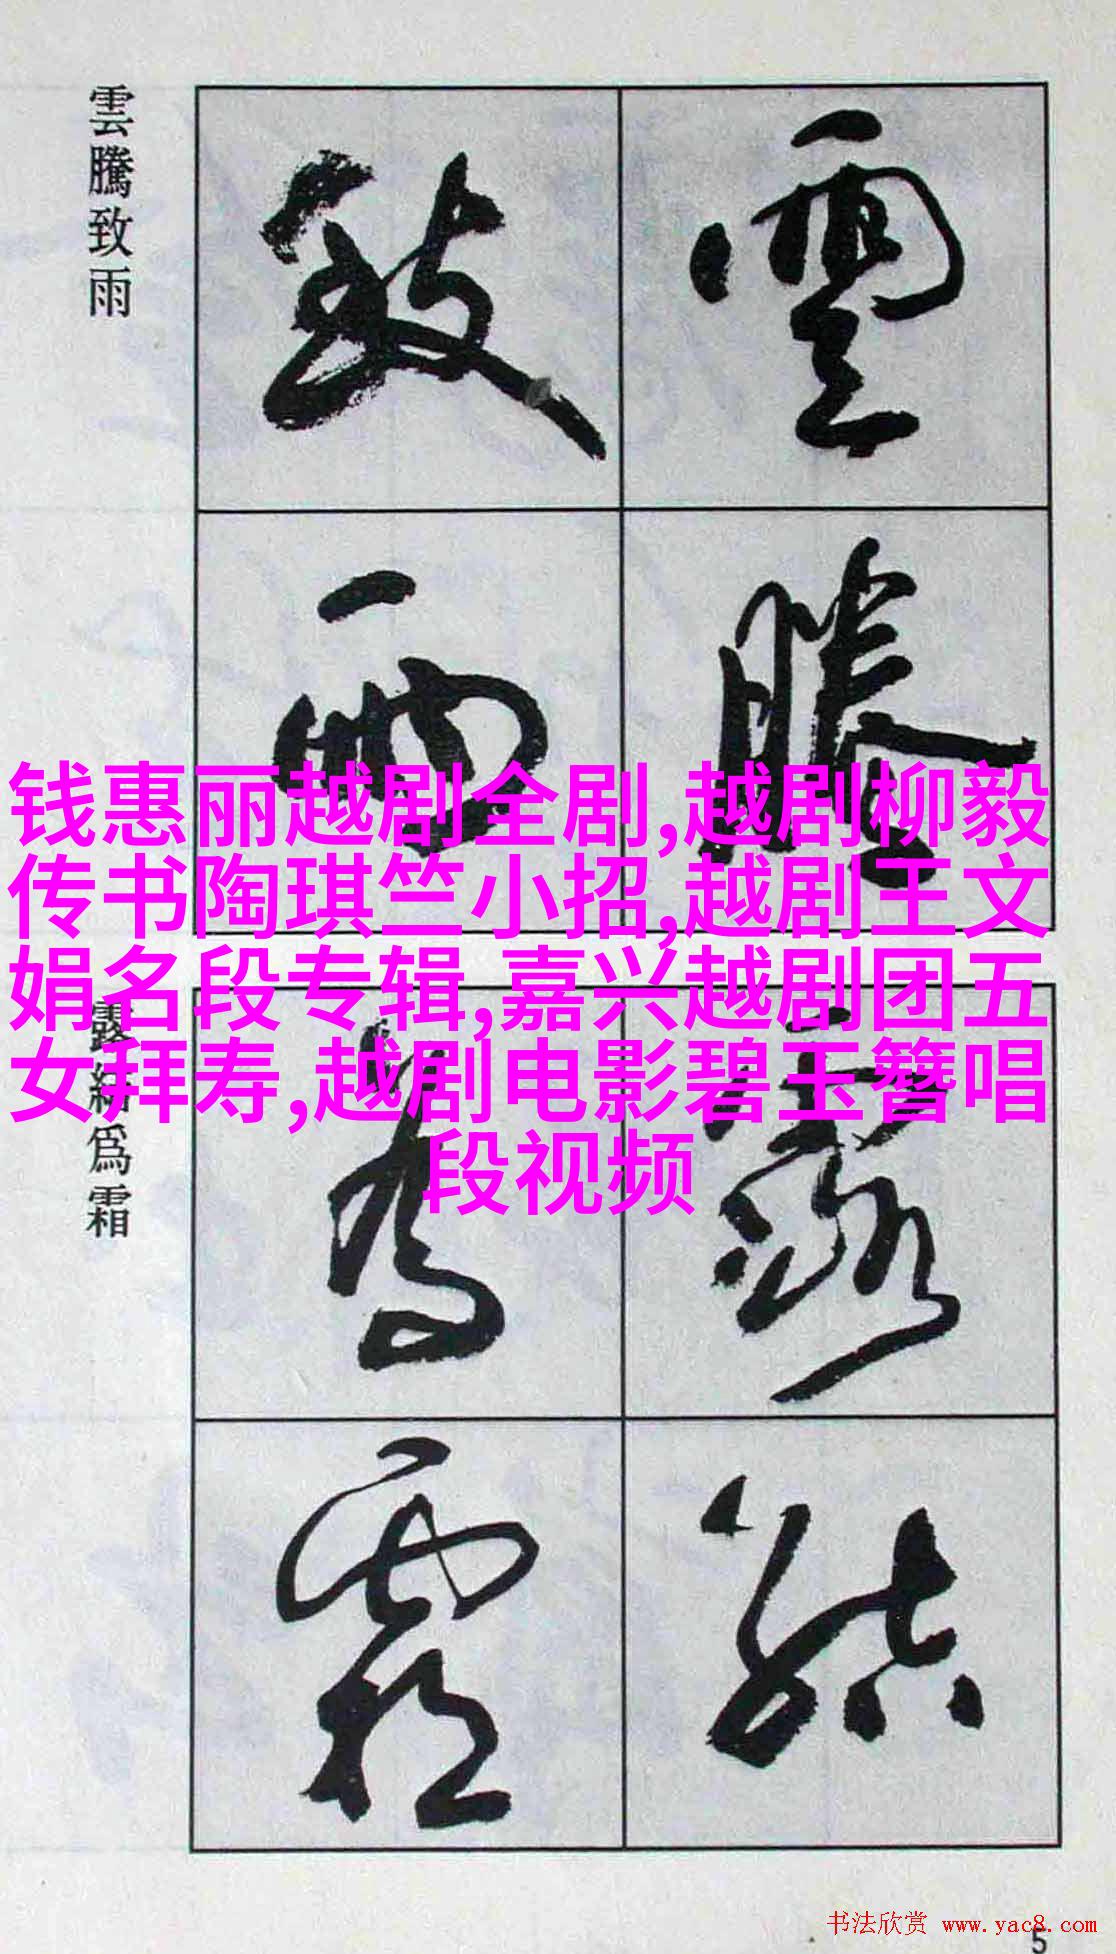 雲騰致雨
雲騰
致雨
钱惠丽越剧全剧,越剧柳毅
传书陶琪竺小招,越剧王文
娟名段专辑,嘉兴越剧团五
女拜寿,越剧电影碧玉簪唱
段视频
露結爲霜
露結
爲霜
书法欣赏 www.yac8.com
5